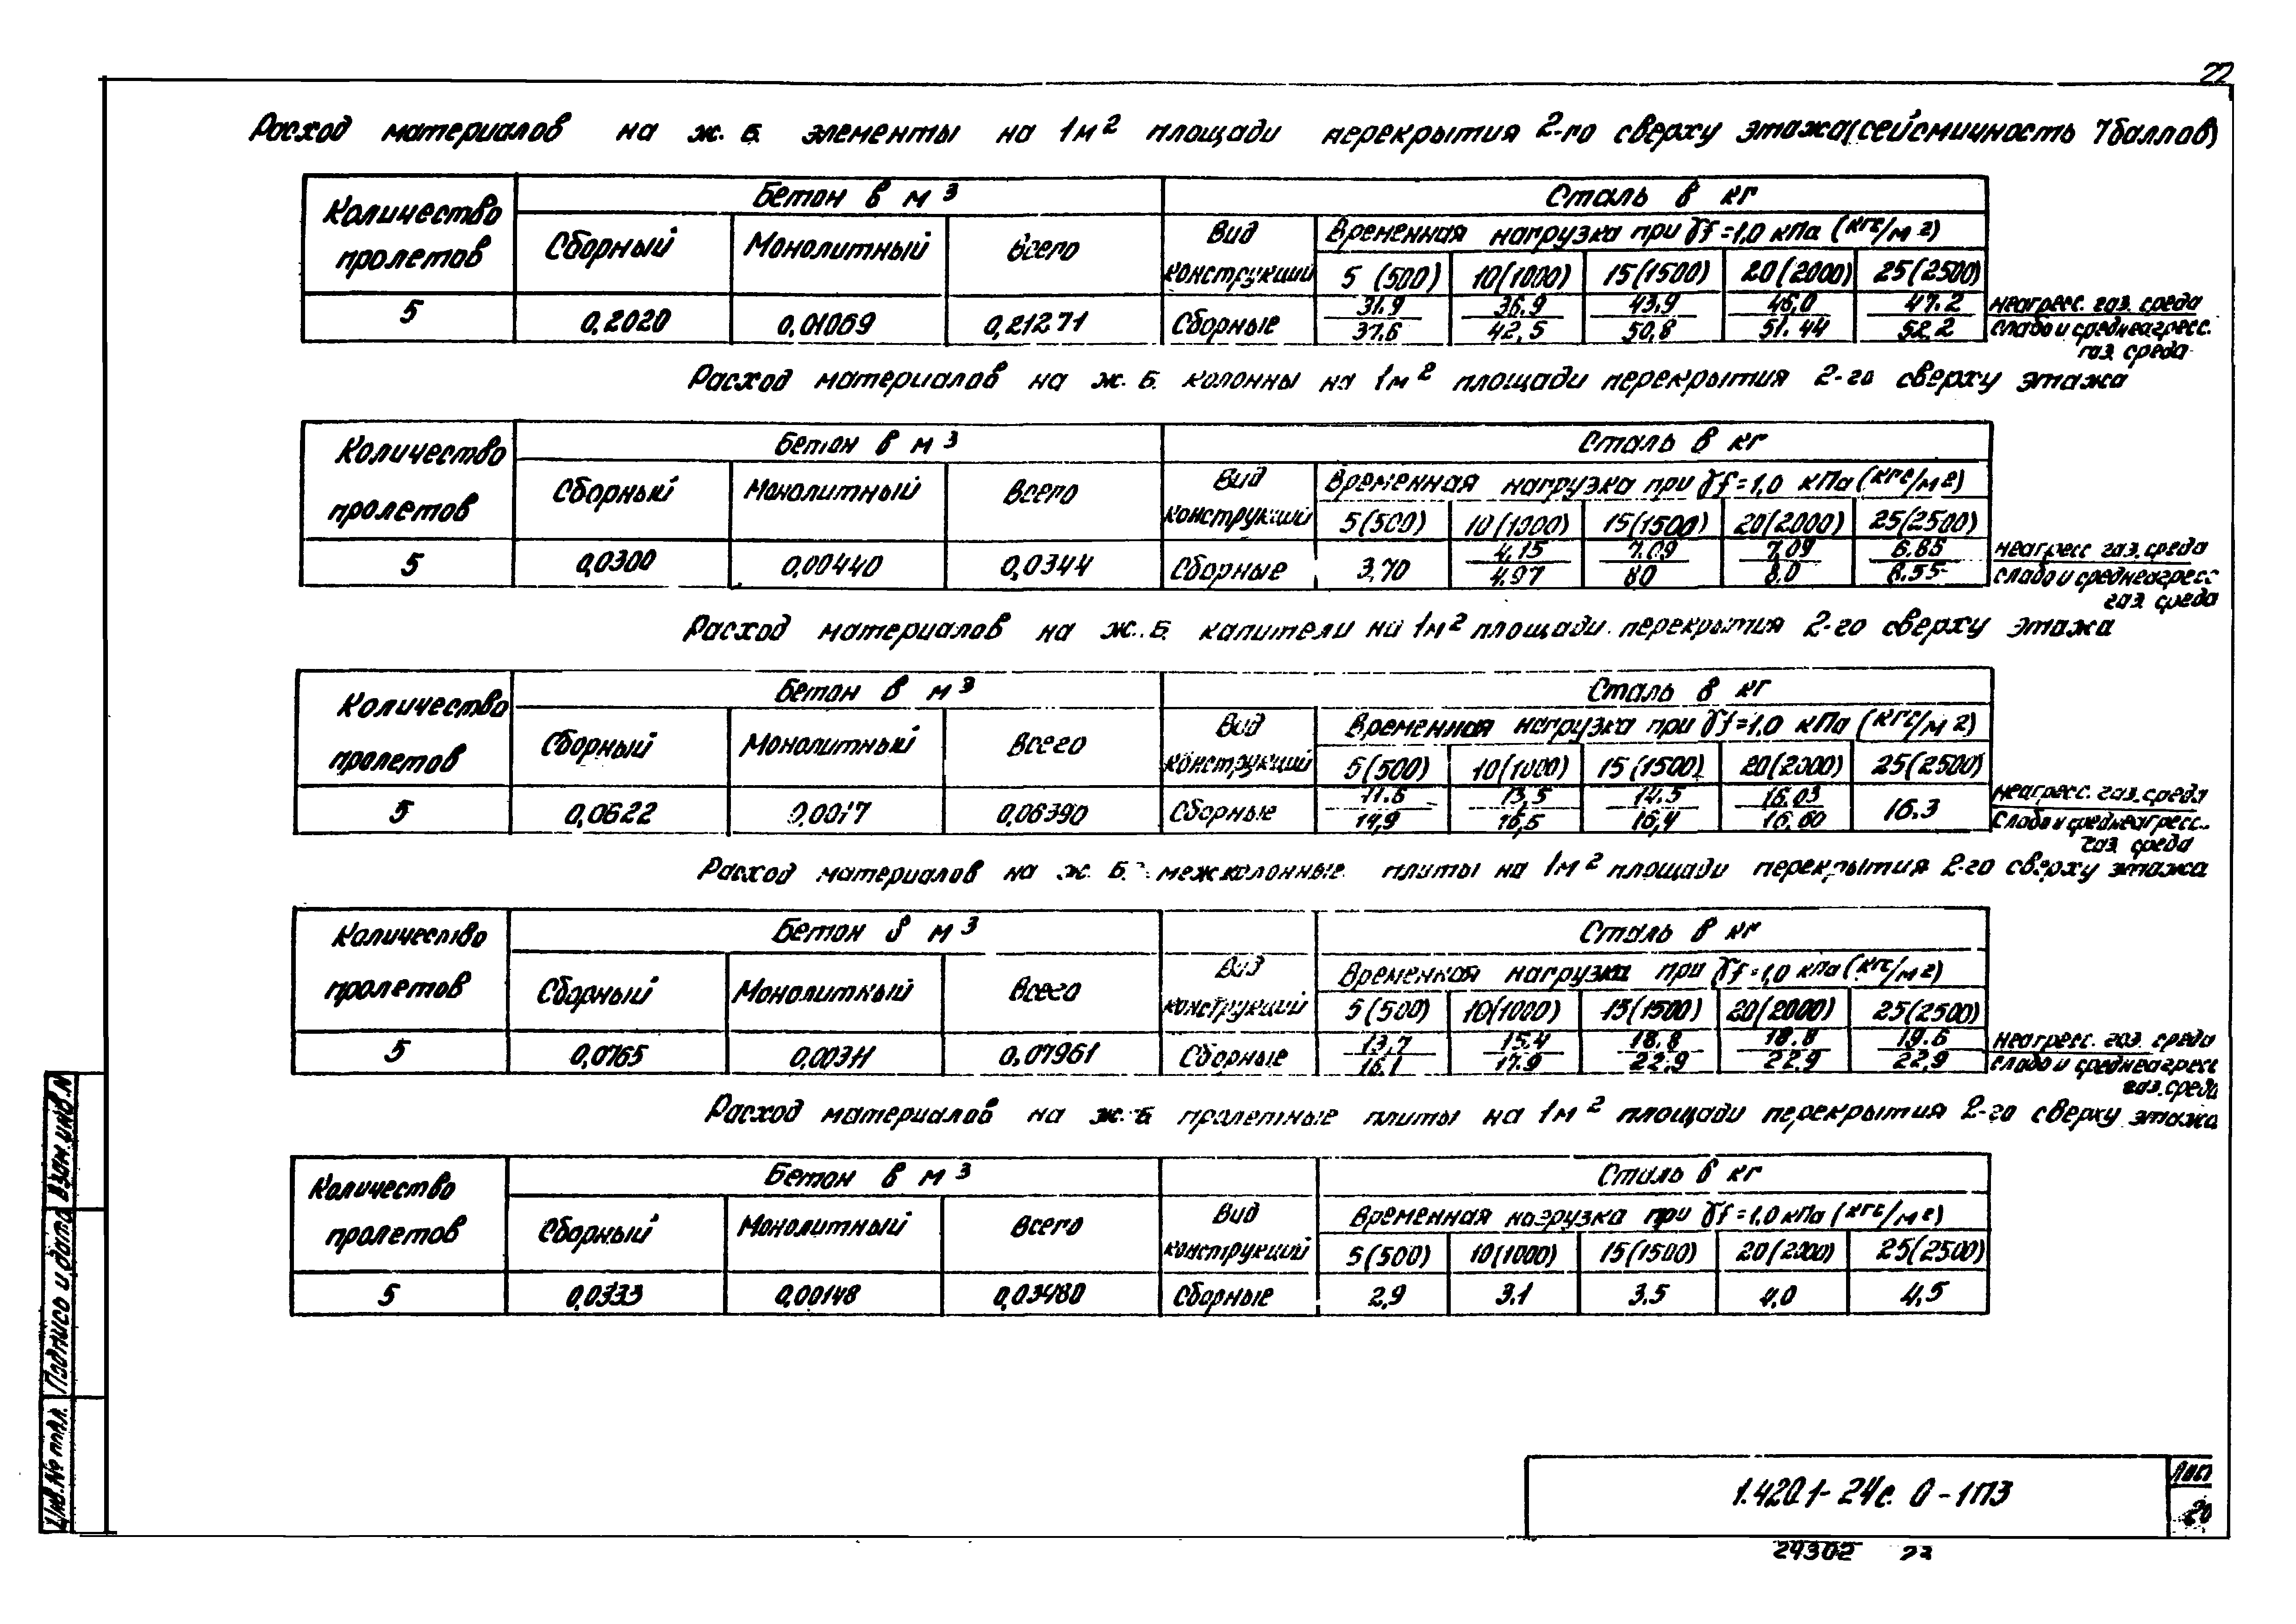 22
Расход материалов на ж. б. элементы на 1м² площади перекрытия 2-го сверху этажа (сейсмичность 7 баллов)
Количество пролетов
Бетон в м³
Сталь в кг
Сборный Монолитный Всего
Вид конструкций
Временная нагрузка при γf=1,0 кПа (кгс/м²)
5 (500) 10(1000) 15(1500) 20(2000) 25(2500)
5 0,2020 0,01069 0,21271 Сборные
31.9 36.9 43.9 46,0 47.2 неагресс. газ. среда
37.6 42,5 50,8 51.44 52.2 слабо и среднеагресс.
газ. среда
Расход материалов на ж. б. колонны на 1м² площади перекрытия 2-го сверху этажа
Количество пролетов
Бетон в м³
Сталь в кг
Сборный Монолитный Всего
Вид конструкций
Временная нагрузка при γf=1,0 кПа (кгс/м²)
5(500) 10(1000) 15(1500) 20(2000) 25(2500)
5 0,0300 0,00440 0,0344 Сборные 3,70
4,15 7.09 7,09 6.85 неагресс газ. среда
4.97 8.0 8.0 8.55 слабо и среднеагресс
газ. среда
Расход материалов на ж. б. капители на 1м² площади перекрытия 2-го сверху этажа
Количество пролетов
Бетон в м³
Сталь в кг
Сборный Монолитный Всего
Вид конструкций
Временная нагрузка при γf=1,0 кПа (кгс/м²)
5(500) 10(1000) 15(1500) 20(2000) 25(2500)
5 0,0622 0,0017 0,06390 Сборные 16.3
11.6 13,5 14.5 16.03 неагресс. газ. среда
14,9 16,5 16,4 16.60 слабо и среднеагресс.
газ. среда
Расход материалов на ж. б. межколонные плиты на 1м² площади перекрытия 2-го сверху этажа
Количество пролетов
Бетон в м³
Сталь в кг
Сборный Монолитный Всего
Вид конструкций
Временная нагрузка при γf=1,0 кПа (кгс/м²)
5(500) 10(1000) 15(1500) 20(2000) 25(2500)
5 0,0765 0,00311 0,07961 Сборные
13,7 15,4 18.8 18.8 19.6 неагресс. газ. среда
16.1 17.9 22,9 22,9 22,9 слабо и среднеагресс
газ. среда
Расход материалов на ж. б пролетные плиты на 1м² площади перекрытия 2-го сверху этажа
Количество пролетов
Бетон в м³
Сталь в кг
Сборный Монолитный Всего
Вид конструкций
Временная нагрузка при γf=1,0 кПа (кгс/м²)
5(500) 10(1000) 15(1500) 20(2000) 25(2500)
5 0,0333 0,00148 0,03480 Сборные 2,9 3.1 3.5 4,0 4,5
Инв.№ подл. Подпись и дата Взам.инв.N
1.420.1-24с. 0-1ПЗ
Лист
20
24302 23